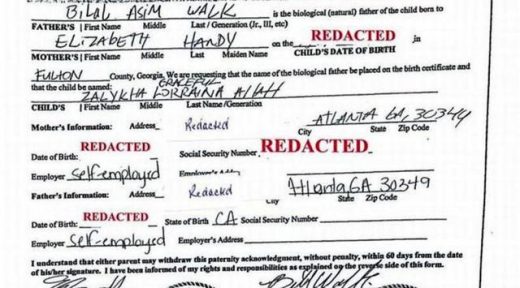 BILAL ASIM WALK is the biological (natural) father of the child born to
FATHER'S | First Name Middle Last / Generation (Jr., III, etc)
ELIZABETH HANDY on the REDACTED in
MOTHER'S | First Name Middle Last Maiden Name CHILD'S DATE OF BIRTH
FULTON County, Georgia. We are requesting that the name of the biological father be placed on the birth certificate and
that the child be named: GRACEFUL
ZALYKHA LORRAINA ALLAH
CHILD'S | First Name Middle Last Name /Generation
Mother's Information: Address Redacted ATLANTA GA, 30344
City State Zip Code
Date of Birth: REDACTED Social Security Number REDACTED
Employer self-employed Employer's Address
Father's Information: Address Redacted Atlanta, GA 30349
City State Zip Code
Date of Birth: REDACTED State of Birth CA Social Security Number
Employer self-employed Employer's Address
I understand that either parent may withdraw this paternity acknowledgment, without penalty, within 60 days from the date
of his/her signature. I have been informed of my rights and responsibilities as explained on the reverse side of this form.